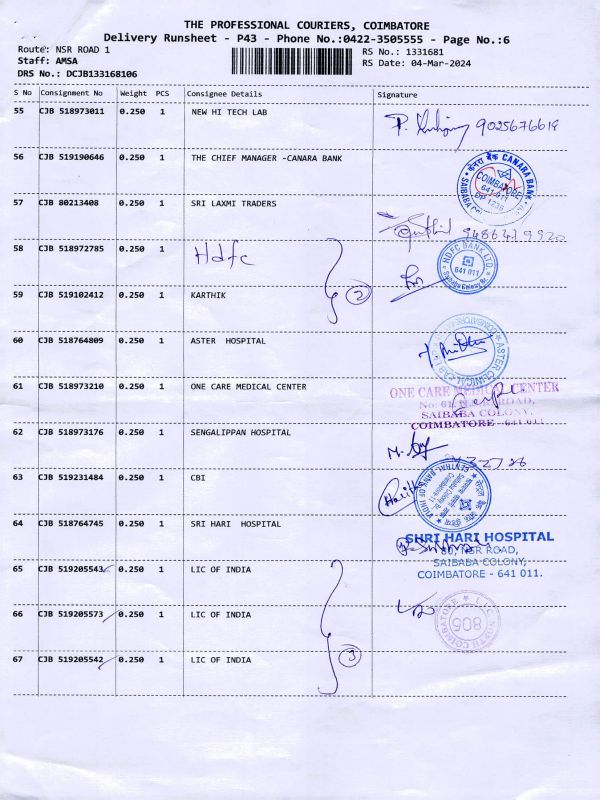 THE PROFESSIONAL COURIERS, COIMBATORE
Delivery Runsheet - P43 - Phone No.:0422-3505555 - Page No.:6
Route: NSR ROAD 1
Staff: AMSA
DRS No.: DCJB133168106
RS No.: 1331681
RS Date: 04-Mar-2024
S No Consignment No Weight PCS Consignee Details Signature
55 CJB 518973011 0.250 1 NEW HI TECH LAB
9025676619
56 CJB 519190646 0.250 1 THE CHIEF MANAGER -CANARA BANK
केनरा बैंक CANARA BANK
COIMBATORE
641 011
SAIBABA
57 CJB 80213408 0.250 1 SRI LAXMI TRADERS
9486419920
58 CJB 518972785 0.250 1 Hdfc
HDFC BANK LTD.
641 011
Saibaba Colony Br.
2
59 CJB 519102412 0.250 1 KARTHIK
60 CJB 518764809 0.250 1 ASTER HOSPITAL
ASTER CLINICAL LAB
COIMBATORE
61 CJB 518973210 0.250 1 ONE CARE MEDICAL CENTER
ONE CARE MEDICAL CENTER
No: 61, N.S.R. ROAD,
SAIBABA COLONY,
COIMBATORE - 641 011
62 CJB 518973176 0.250 1 SENGALIPPAN HOSPITAL
63 CJB 519231484 0.250 1 CBI
Harith
CENTRAL BANK OF INDIA
64 CJB 518764745 0.250 1 SRI HARI HOSPITAL
SHRI HARI HOSPITAL
80, NSR ROAD,
SAIBABA COLONY,
COIMBATORE - 641 011.
65 CJB 519205543 0.250 1 LIC OF INDIA
66 CJB 519205573 0.250 1 LIC OF INDIA
805
COIMBATORE
67 CJB 519205542 0.250 1 LIC OF INDIA
3